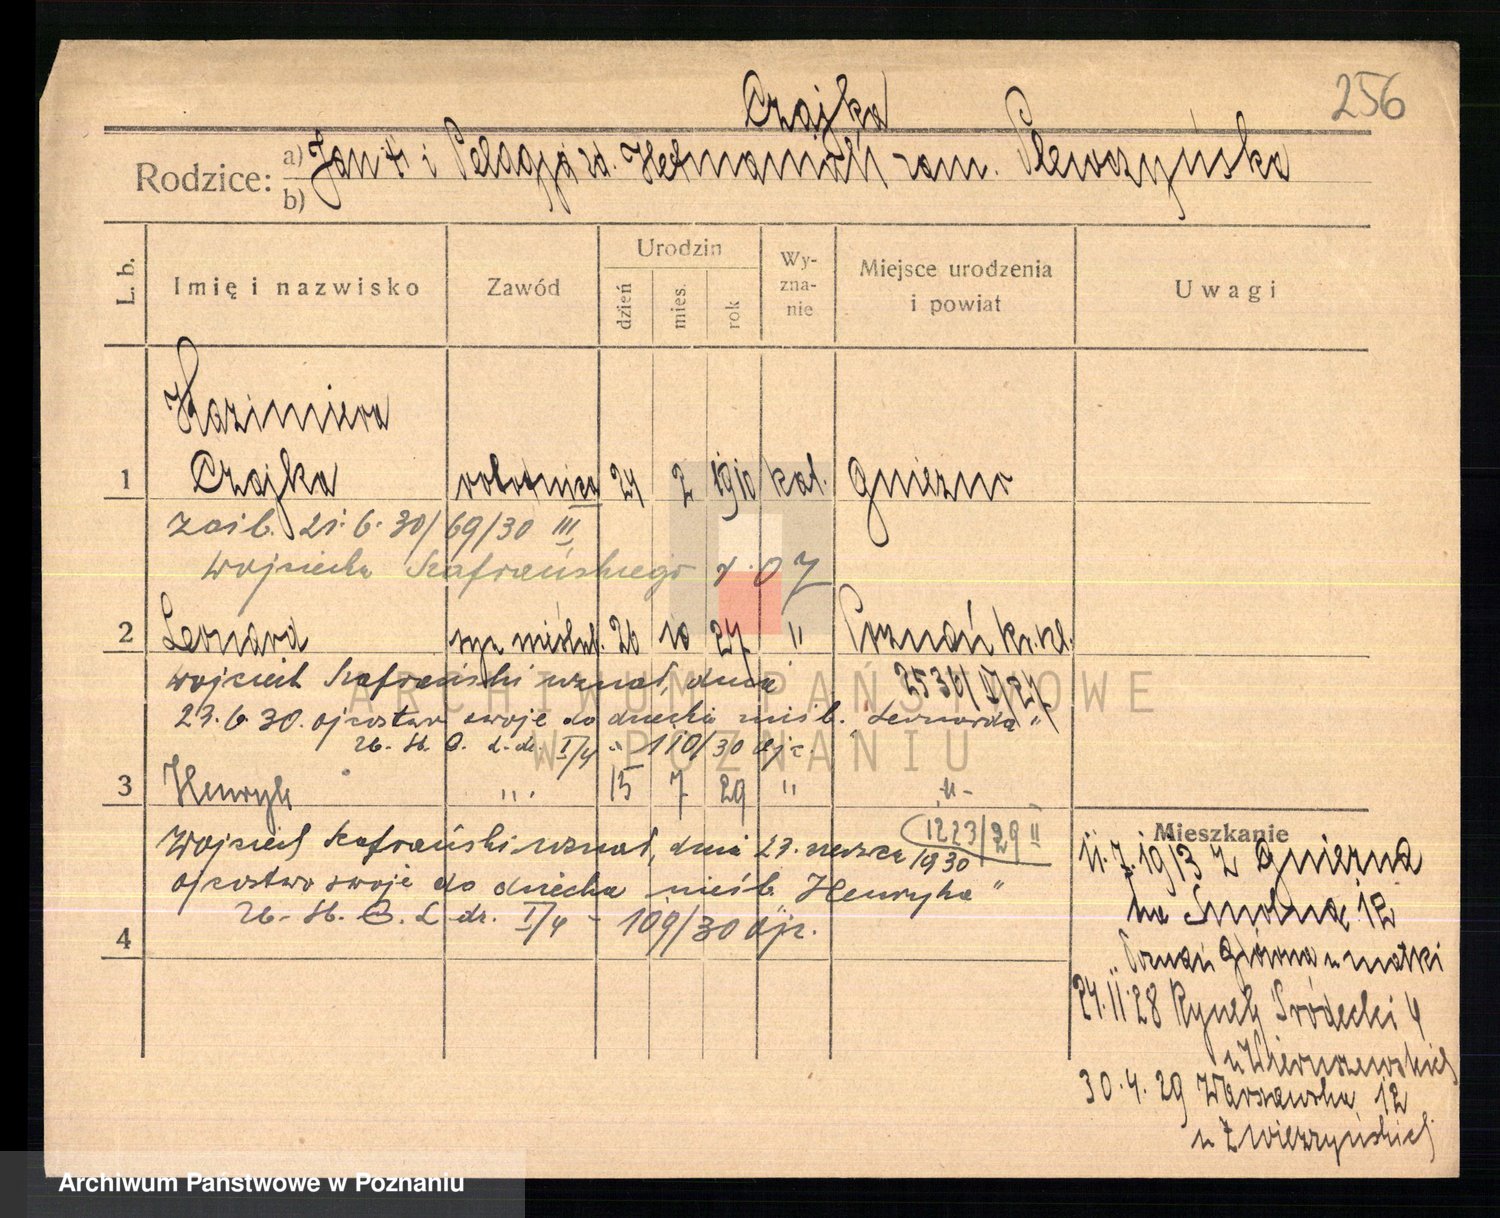 256
Czajka
Rodzice: a) Jan † i Pelagja zd. Hetmaniak zam. Plewczyńska
b)
L. b. Imię i nazwisko Zawód Urodzin dzień mies. rok Wyznanie Miejsce urodzenia i powiat Uwagi
Kazimiera
1 Czajka robotnica 24 2 1910 kat. Gniezno
zaśl. 21. 6. 30/ 69/30 III
Wojciecha Szafrańskiego r. 07
2 Leonard syn nieślub. 26 10 27 " Poznań
Wojciech Szafrański uznał, dnia 2536/IV/27
23. 6. 30. ojcostwo swoje do dziecka nieśb. "Leonarda"
I/4 - 110/30 Ojc.
3 Henryk " 15 7 29 " -"-
1223/29 II
Wojciech Szafrański uznał, dnia 23. czerwca 1930
ojcostwo swoje do dziecka nieśb. "Henryka"
I/4 - 109/30 Ojc.
4
Mieszkanie
11. 7. 1913 z Gniezna
na Smolna 12
Poznań Główna u matki
24. II. 28 Rynek Śródecki 4
u Wieruszewskich
30. 4. 29 Warszawska 12
u Zwierzyńskich
ARCHIWUM PAŃSTWOWE
W POZNANIU
Archiwum Państwowe w Poznaniu